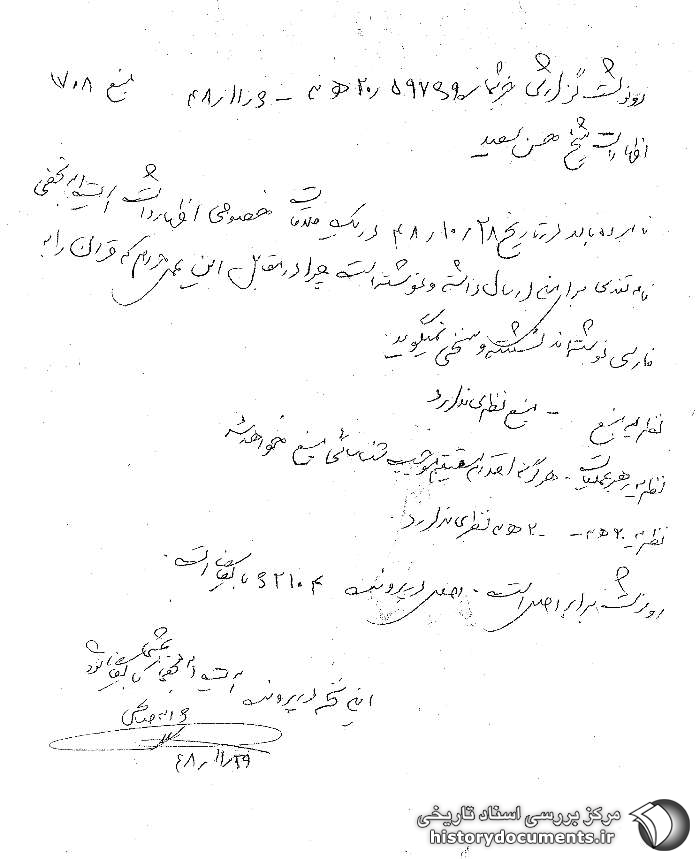 رونوشت گزارش خبر شماره ۵۹۷۶۹ / ۲۰ هـ ۳ – ۶ / ۱۱ / ۴۸ منبع ۱۷۰۸
اظهارات شیخ حسن سعید
نامبرده بالا در تاریخ ۲۸ / ۱۰ / ۴۸ در یک ملاقات خصوصی اظهار داشت آیت‌اله نجفی
نامه تندی برای من ارسال داشته و نوشته است چرا در مقابل این عمل که قرآن را به
فارسی نوشته‌اند نشسته و سخنی نمیگوید
نظریه منبع – منبع نظری ندارد
نظریه رهبر عملیات – هرگونه اقدام مستقیم موجب شناسائی منبع خواهد شد
نظریه ۲۰ هـ ۳ – ۲۰ هـ ۳ نظری ندارد
رونوشت برابر اصل است . اصل در پرونده ۶۲۱۰۴ بایگانی است .
این نسخه در پرونده آیت اله نجفی بایگانی شود
۲۹ / ۱۱ / ۴۸
مرکز بررسی اسناد تاریخی
historydocuments.ir